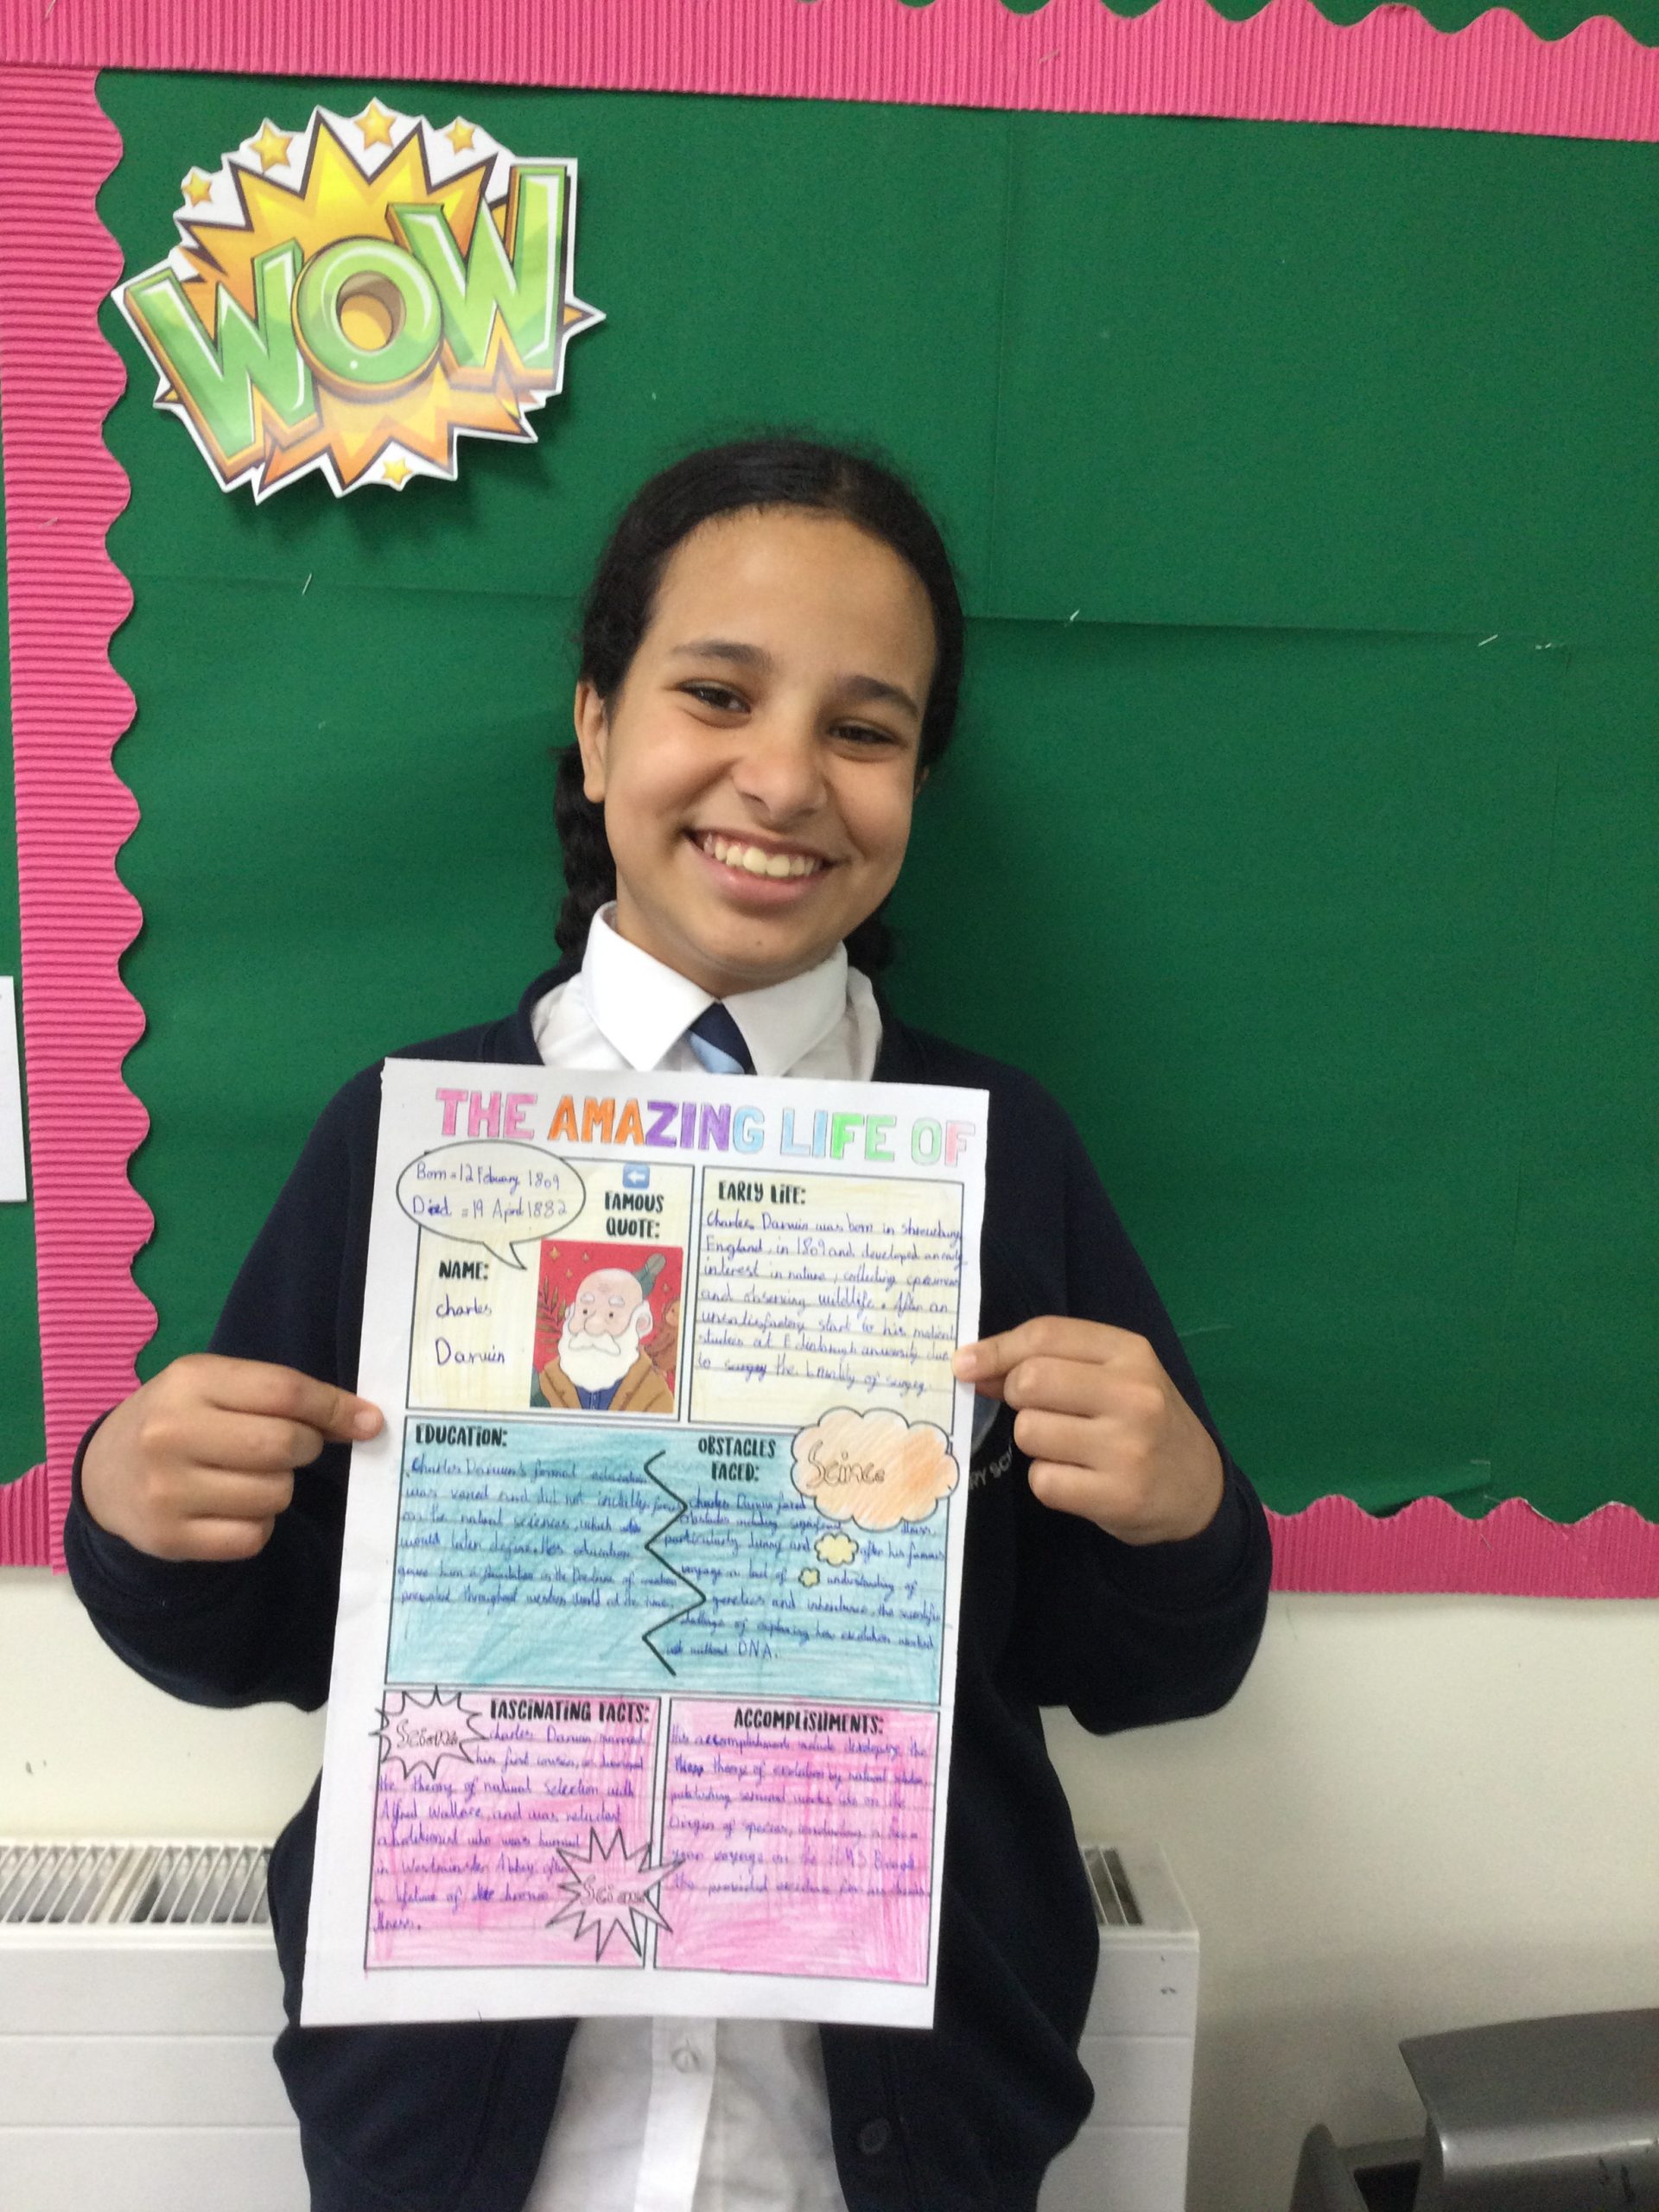 WOW
THE AMAZING LIFE OF
Born = 12 Febuary 1809
Died = 19 April 1882
FAMOUS
QUOTE:
NAME:
charles
Darwin
EARLY LIFE:
Charles Darwin was born in shrewsbury
England, in 1809 and developed an early
interest in nature, collecting specimens
and observing wildlife. After an
unsatisfactory start to his medical
studies at Edinburgh university due
to surgey the brutality of surgey.
EDUCATION:
Charles Darwin's formal education
was varied and did not initially focus
on the natural sciences, which
would later define. His education
gave him a foundation in the Doctrine of creation
prevalent throughout western world at the time.
OBSTACLES
FACED:
Science
Charles Darwin faced
obstacles including significant illness,
particularly during and after his famous
voyage a lack of understanding of
genetics and inheritance, the scientific
challenge of explaining how evolution worked
without DNA.
FASCINATING FACTS:
Science
charles Darwin married
his first cousin, co-
the theory of natural selection with
Alfred Wallace, and was reluctant
abolitionist who was buried
in Westminster Abbey after
a lifetime of chronic
illness.
Science
ACCOMPLISHMENTS:
His accomplishments include developing the
theory of evolution by natural selection,
publishing seminal works on the
Origin of species, conducting a five
year voyage on the HMS Beagle
the provided evidence for his
RY SCH